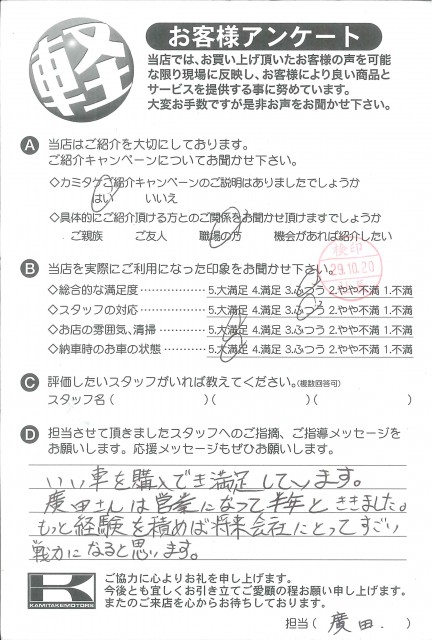 軽
お客様アンケート
当店では、お買い上げ頂いたお客様の声を可能
な限り現場に反映し、お客様により良い商品と
サービスを提供する事に努めています。
大変お手数ですが是非お声をお聞かせ下さい。
A 当店はご紹介を大切にしております。
ご紹介キャンペーンについてお聞かせ下さい。
◇カミタケご紹介キャンペーンのご説明はありましたでしょうか
はい いいえ
◇具体的にご紹介頂ける方とのご関係をお聞かせ頂けますでしょうか
ご親族 ご友人 職場の方 機会があれば紹介したい
検印
29.10.20
B 当店を実際にご利用になった印象をお聞かせ下さい。
◇総合的な満足度 5.大満足 4.満足 3.ふつう 2.やや不満 1.不満
◇スタッフの対応 5.大満足 4.満足 3.ふつう 2.やや不満 1.不満
◇お店の雰囲気、清掃 5.大満足 4.満足 3.ふつう 2.やや不満 1.不満
◇納車時のお車の状態 5.大満足 4.満足 3.ふつう 2.やや不満 1.不満
C 評価したいスタッフがいれば教えてください。(複数回答可)
スタッフ名( )( )( )
D 担当させて頂きましたスタッフへのご指摘、ご指導メッセージを
お願いします。応援メッセージもぜひお願いします。
いい車を購入でき満足しています。
廣田さんは営業になって半年とききました。
もっと経験を積めば将来会社にとってすごい
戦力になると思います。
K
KAMITAKEMOTORS
ご協力に心よりお礼を申し上げます。
今後とも宜しくお引き立てご愛顧の程お願い申し上げます。
またのご来店を心からお待ちしております。
担当( 廣田 )